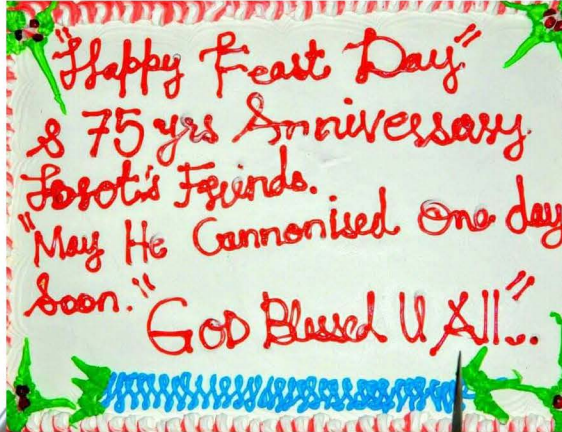 "Happy Feast Day"
& 75 yrs Anniversary
Frends.
"May He Cannonised One day
Soon."
"GOD Blessed U All..